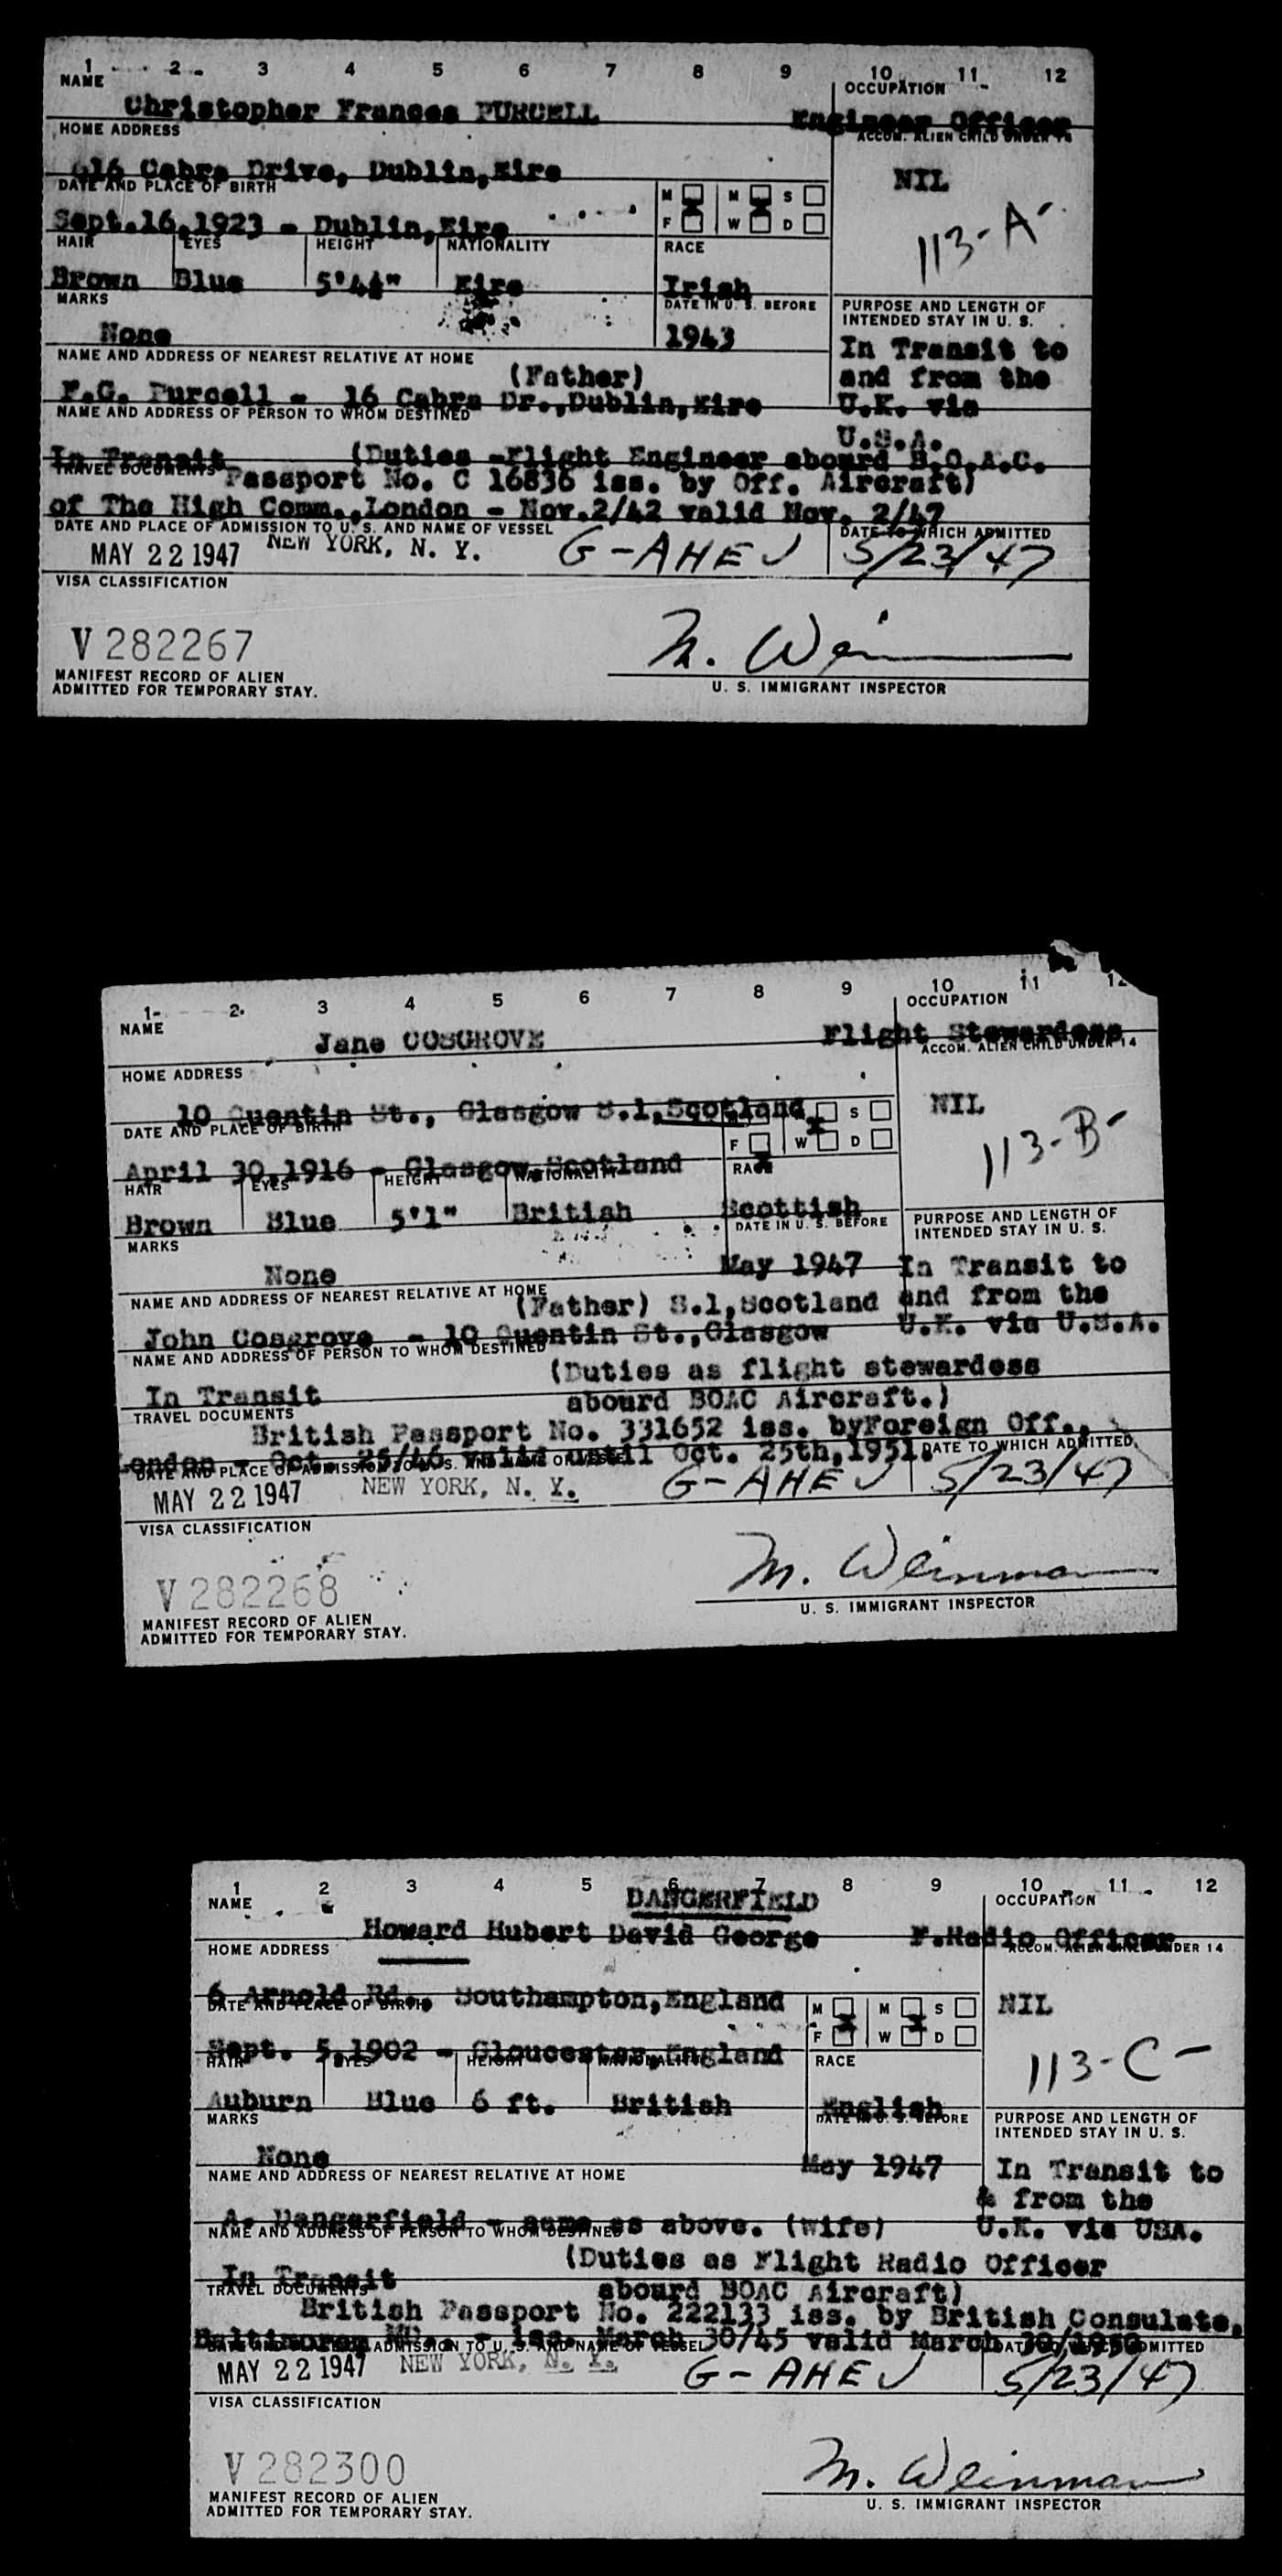 1 2 3 4 5 6 7 8 9 10 11 12
NAME OCCUPATION
Christopher Frances PURCELL Engineer Officer
HOME ADDRESS ACCOM. ALIEN CHILD UNDER 14
16 Cabra Drive, Dublin,Eire NIL
DATE AND PLACE OF BIRTH M M S
Sept.16,1923 - Dublin,Eire F W D
113-A
HAIR EYES HEIGHT NATIONALITY RACE
Brown Blue 5'4½" Eire Irish
MARKS DATE IN U. S. BEFORE PURPOSE AND LENGTH OF
INTENDED STAY IN U. S.
None 1943 In Transit to
NAME AND ADDRESS OF NEAREST RELATIVE AT HOME
(Father) and from the
F.G. Purcell - 16 Cabra Dr.,Dublin,Eire U.K. via
NAME AND ADDRESS OF PERSON TO WHOM DESTINED
U.S.A.
In Transit (Duties -Flight Engineer abourd B.O.A.C.
TRAVEL DOCUMENTS Passport No. C 16836 iss. by Off. Aircraft)
of The High Comm.,London - Nov.2/42 valid Nov. 2/47
DATE AND PLACE OF ADMISSION TO U. S. AND NAME OF VESSEL DATE TO WHICH ADMITTED
MAY 22 1947 NEW YORK, N. Y. G-AHEJ 5/23/47
VISA CLASSIFICATION
V 282267 M. Wein
MANIFEST RECORD OF ALIEN
ADMITTED FOR TEMPORARY STAY. U. S. IMMIGRANT INSPECTOR
1 2 3 4 5 6 7 8 9 10 11 12
NAME OCCUPATION
Jane COSGROVE Flight Stewardess
HOME ADDRESS ACCOM. ALIEN CHILD UNDER 14
10 Quentin St., Glasgow S.1,Scotland S NIL
DATE AND PLACE OF BIRTH F W D
April 30,1916 - Glasgow,Scotland
113-B
HAIR EYES HEIGHT NATIONALITY RACE
Brown Blue 5'1" British Scottish
MARKS DATE IN U. S. BEFORE PURPOSE AND LENGTH OF
INTENDED STAY IN U. S.
None May 1947 In Transit to
NAME AND ADDRESS OF NEAREST RELATIVE AT HOME
(Father) S.1,Scotland and from the
John Cosgrove - 10 Quentin St.,Glasgow U.K. via U.S.A.
NAME AND ADDRESS OF PERSON TO WHOM DESTINED
(Duties as flight stewardess
In Transit abourd BOAC Aircraft.)
TRAVEL DOCUMENTS
British Passport No. 331652 iss. byForeign Off.,
London - Oct. 25/46 valid until Oct. 25th,1951.
DATE AND PLACE OF ADMISSION TO U. S. AND NAME OF VESSEL DATE TO WHICH ADMITTED
MAY 22 1947 NEW YORK, N. Y. G-AHEJ 5/23/47
VISA CLASSIFICATION
V 282268 M. Weinman
MANIFEST RECORD OF ALIEN
ADMITTED FOR TEMPORARY STAY. U. S. IMMIGRANT INSPECTOR
1 2 3 4 5 6 7 8 9 10 11 12
NAME DANGERFIELD OCCUPATION
Howard Hubert David George F.Radio Officer
HOME ADDRESS ACCOM. ALIEN CHILD UNDER 14
6 Arnold Rd., Southampton,England NIL
DATE AND PLACE OF BIRTH M M S
F W D
Sept. 5,1902 - Gloucester,England
113-C
HAIR EYES HEIGHT NATIONALITY RACE
Auburn Blue 6 ft. British English
MARKS DATE IN U. S. BEFORE PURPOSE AND LENGTH OF
INTENDED STAY IN U. S.
None May 1947 In Transit to
NAME AND ADDRESS OF NEAREST RELATIVE AT HOME & from the
A. Dangerfield - same as above. (Wife) U.K. via USA.
NAME AND ADDRESS OF PERSON TO WHOM DESTINED
(Duties as Flight Radio Officer
In Transit abourd BOAC Aircraft)
TRAVEL DOCUMENTS
British Passport No. 222133 iss. by British Consulate,
Baltimore, MD. - iss. March 30/45 valid March 30/1950
DATE AND PLACE OF ADMISSION TO U. S. AND NAME OF VESSEL DATE TO WHICH ADMITTED
MAY 22 1947 NEW YORK, N. Y. G-AHEJ 5/23/47
VISA CLASSIFICATION
V 282300 M. Weinman
MANIFEST RECORD OF ALIEN
ADMITTED FOR TEMPORARY STAY. U. S. IMMIGRANT INSPECTOR